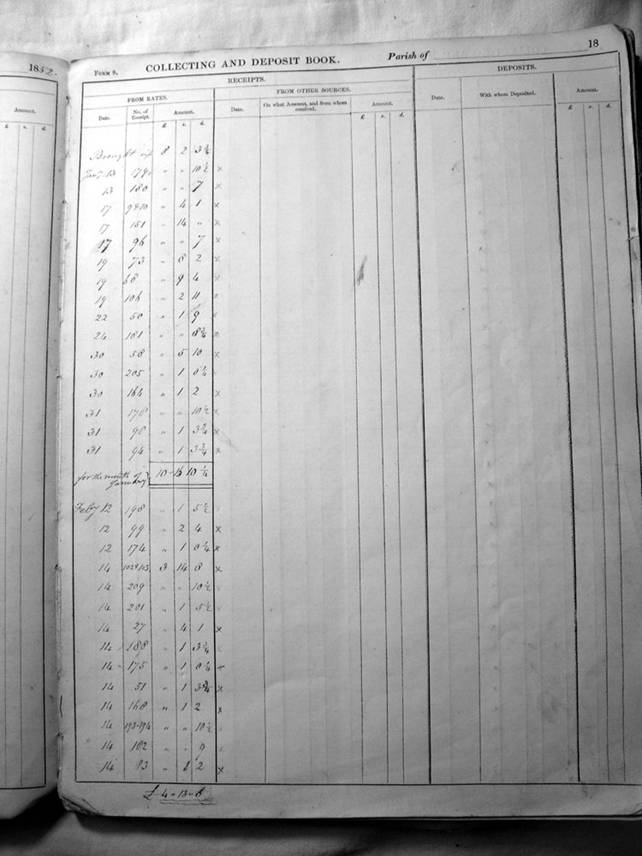 1852.
Amount.
£ s. d.
18
FORM 9. COLLECTING AND DEPOSIT BOOK. Parish of
RECEIPTS. DEPOSITS.
FROM RATES. FROM OTHER SOURCES.
Date. No. of Receipt. Amount. Date. On what Account, and from whom received. Amount. Date. With whom Deposited. Amount.
£ s. d. £ s. d. £ s. d.
Brought up 8 2 3
13 180 " " 7 x
17 9 & 10 " 4 1 x
17 151 " 14 " x
17 96 " " 7 x
19 73 " 8 2 x
19 68 " 9 4
19 106 " 2 11
22 50 " 1 9
24 181 " "
30 58 " 5 10
30 205 " 1
30 164 " 1 2 x
31 178 " " 10½ x
31 98 " 1 3¾ x
31 94 " 1 3¾ x
for the month of January 10 - 16 10 ¼
Feby 12 198 " 1 5½
12 99 " 2 4 x
12 174 " 1 x
14 3 14 8 x
14 209 " " 10½
14 201 " 1 5½
14 27 " 4 1 x
14 188 " 1 3¾
14 175 " 1
14 51 " 1 3¾ x
14 168 " 1 2 x
14 193-194 " " 10½
14 182 " "
14 83 " 2 x
£ 4 - 13 - 8